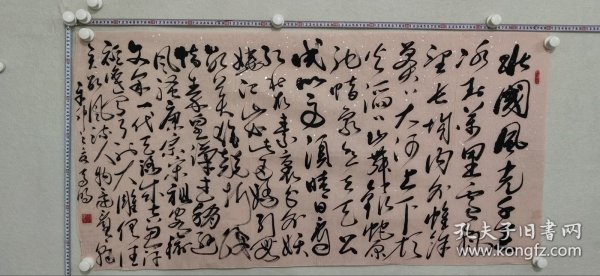 北國風光千里
冰封萬里雪飄
望長城內外惟餘
莽莽大河上下頓
失滔滔山舞銀蛇原
馳蠟象欲與天公
試比高須晴日看
紅裝素裹分外妖
嬈江山如此多嬌引無
數英雄競折腰
惜秦皇漢武略輸
唐宗宋祖稍遜
一代天驕成吉思汗
大雕俱往
矣數風流人物還看今朝
孔夫子旧书网
www.kongfz.com